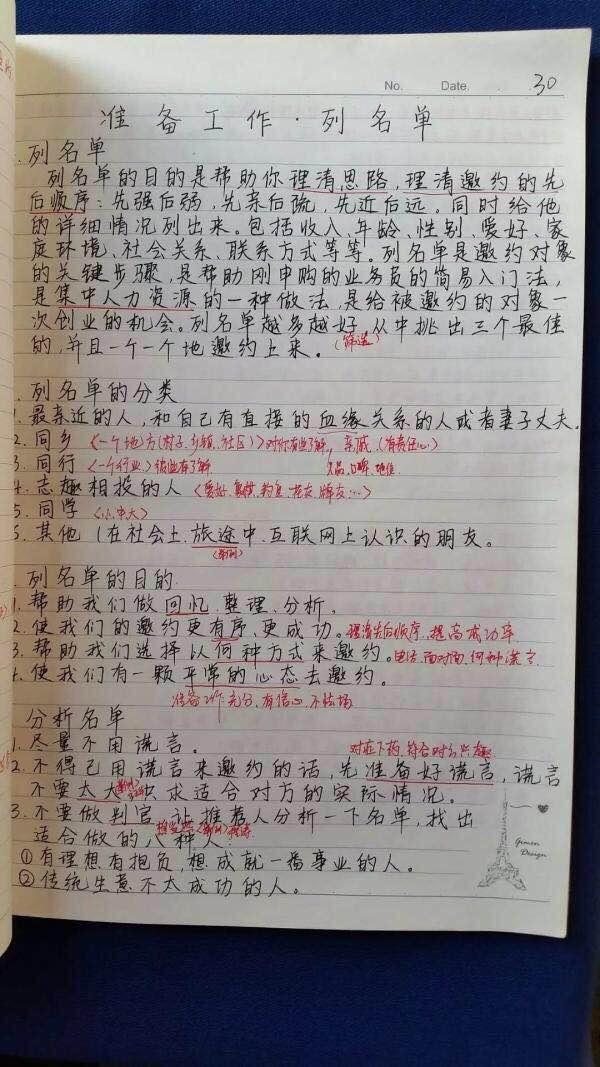 No. Date. 30
准备工作·列名单
列名单
列名单的目的是帮助你理清思路,理清邀约的先
后顺序:先强后弱,先亲后疏,先近后远。同时给他
的详细情况列出来。包括收入、年龄、性别、爱好、家
庭环境、社会关系、联系方式等等。列名单是邀约对象
的关键步骤,是帮助刚申购的业务员的简易入门法,
是集中人力资源的一种做法,是给被邀约的对象一
次创业的机会。列名单越多越好,从中挑出三个最佳
的,并且一个一个地邀约上来。(筛选)
列名单的分类
1. 最亲近的人,和自己有直接的血缘关系的人或者妻子丈夫。
2. 同乡〈一个地方(村子、乡镇、社区)〉对你有些了解、亲戚(有责任心)
3. 同行〈一个行业〉彼此有了解 人品、口碑、地位
4. 志趣相投的人〈爱好、钓鱼、牌友…〉
5. 同学〈小、中、大〉
6. 其他(在社会上、旅途中、互联网上认识的朋友。
(举例)
列名单的目的
1. 帮助我们做回忆、整理、分析。
2. 使我们的邀约更有序、更成功。理清先后顺序、提高成功率
3. 帮助我们选择以何种方式来邀约。电话、面对面、何种谎言
4. 使我们有一颗平常的心态去邀约。
准备工作充分、有信心、不怯场
分析名单
1. 尽量不用谎言。 对症下药、符合对方兴趣
2. 不得已用谎言来邀约的话,先准备好谎言,谎言
不要太大,只求适合对方的实际情况。
3. 不要做判官,让推荐人分析一下名单,找出
适合做的八种人:
①有理想有抱负,想成就一番事业的人。
②传统生意不太成功的人。
Gimen
Design